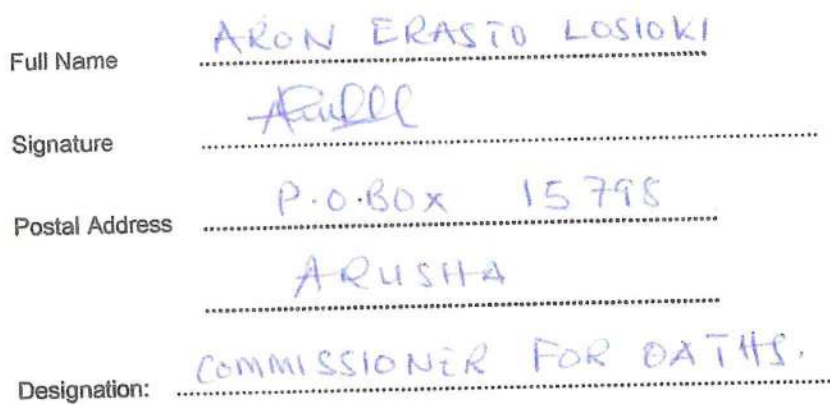 Full Name ARON ERASTO LOSIOKI
Signature
Postal Address P.O.BOX 15798
ARUSHA
Designation: COMMISSIONER FOR OATHS.